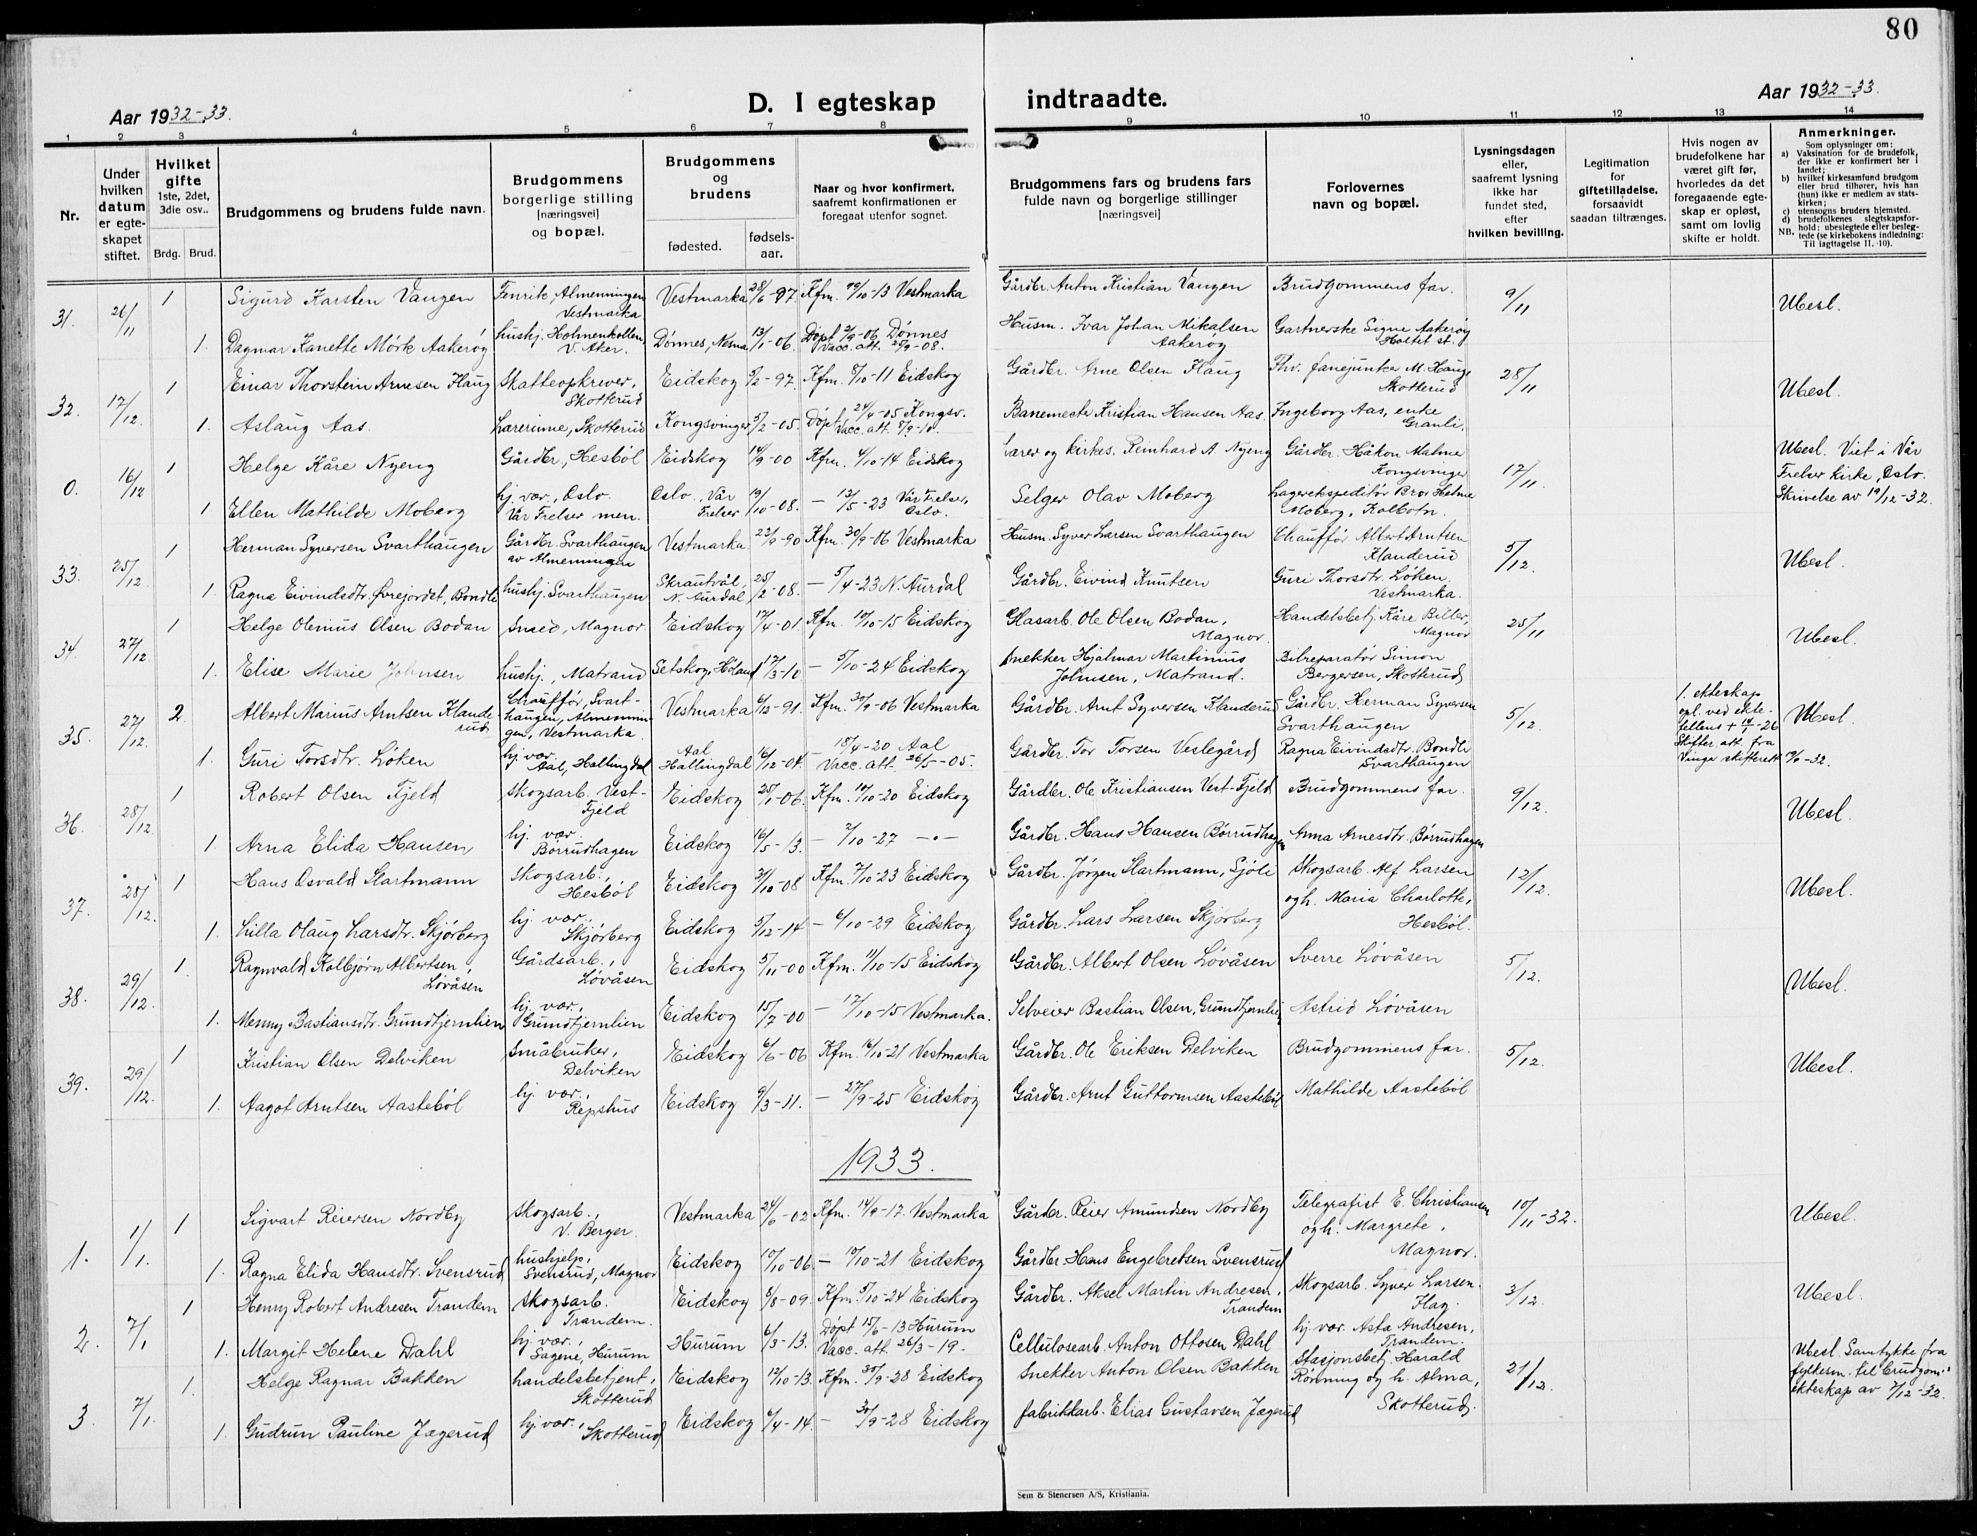 80
Aar 1932-33.
D. I egteskap indtraadte.
Aar 1932-33.
1 2 3 4 5 6 7 8 9 10 11 12 13 14
Nr.
Under hvilken datum er egteskapet stiftet.
Hvilket gifte 1ste, 2det, 3die osv..
Brdg. Brud.
Brudgommens og brudens fulde navn.
Brudgommens borgerlige stilling [næringsvei] og bopæl.
Brudgommens og brudens
fødested.
fødsels-aar.
Naar og hvor konfirmert, saafremt konfirmationen er foregaat utenfor sognet.
Brudgommens fars og brudens fars fulde navn og borgerlige stillinger [næringsvei]
Forlovernes navn og bopæl.
Lysningsdagen eller, saafremt lysning ikke har fundet sted, efter hvilken bevilling.
Legitimation for giftetilladelse, forsaavidt saadan tiltrænges.
Hvis nogen av brudefolkene har været gift før, hvorledes da det foregaaende egteskap er opløst, samt om lovlig skifte er holdt.
Anmerkninger.
Som oplysninger om:
a) Vaksination for de brudefolk, der ikke er konfirmert her i landet;
b) hvilket kirkesamfund brudgom eller brud tilhører, hvis han (hun) ikke er medlem av statskirken;
c) utensogns bruders hjemsted.
d) brudefolkenes slegtskapsforhold: ubeslegtede eller beslegtede (se kirkebokens indledning:
NB. Til iagttagelse II. 10).
31. 26/11 1 Sigurd Karsten Vangen Fenrik, Almenningen Vestmarka Vestmarka 28/6-87 Kfm. 19/10-13 Vestmarka Gårdbr. Anton Kristian Vangen Brudgommens far. 9/11 Ubesl.
1. Dagmar Kanette Mörk Aakerøy hushj. Holmenkollen V. Aker. Dønnes, Nesna 13/1-06. Döpt 2/9-06 Dønnes Vacc. att. 25/9-08. Husm. Ivar Johan Mikalsen Aakerøy Gartnerske Signe Aakerøy Holtet st.
32. 17/12. 1 Einar Thorstein Arnesen Haug Skatteopkrever, Skotterud Eidskog 5/2-97. Kfm. 8/10-11 Eidskog Gårdbr. Arne Olsen Haug Thv. fanejunker M. Hauge Skotterud 28/11 Ubesl.
1. Aslaug Aas. Lærerinne, Skotterud Kongsvinger 5/2-05. Döpt 24/4-05 Kongsv. Vacc. att. 8/9-10. Banemester Kristian Hansen Aas. Ingeborg Aas, enke Granli.
0. 16/12 1 Helge Kåre Nyeng Gårdbr, Hesböl Eidskog 14/9-00 Kfm. 4/10-14 Eidskog Lærer og kirkes. Reinhard A. Nyeng Gårdbr. Håkon Malme Kongsvinger 17/11 Ubesl. Viet i Vår Frelser kirke, Oslo. Skrivelse av 19/12-32.
1. Ellen Mathilde Moberg hj. vær., Oslo. Vår Frelser men. Oslo, Vår Frelser 19/10-08. — 13/5-23 Vår Frelser, Oslo. Selger Olav Moberg Lagerekspeditör Bror Helme Moberg, Kolbotn.
33. 25/12. 1 Herman Syversen Svarthaugen Gårdbr. Svarthaugen av Almenningen Vestmarka 23/9-90 Kfm. 30/9-06 Vestmarka Husm. Syver Larsen Svarthaugen Chauffør Albert Arntsen Klanderud 5/12. Ubesl.
1. Ragna Eivindsdtr. Øvrejordet, Bondli hushj. Svarthaugen Skrautvål, N. Aurdal 25/2-08. — 5/4-23 N. Aurdal Gårdbr. Eivind Knutsen Guri Thorsdtr. Løken. Vestmarka.
34. 27/12. 1 Helge Olenius Olsen Bodan Smed, Magnor. Eidskog 17/4-01 Kfm. 10/10-15 Eidskog Glasarb. Ole Olsen Bodan, Magnor. Handelsbetj. Kåre Biller, Magnor 25/11 Ubesl.
1. Elise Marie Johnsen hushj., Matrand Setskog, Höland 17/3-10 — 5/10-24 Eidskog Snekker Hjalmar Martinius Johnsen, Matrand. Bilreparatør Simon Bergersen, Skotterud.
35. 27/12. 2. Albert Marius Arntsen Klanderud Chauffør, Svarthaugen, Almenningen, Vestmarka. Vestmarka 6/12-91. Kfm. 30/9-06 Vestmarka Gårdbr. Arnt Syversen Klanderud Gårdbr. Herman Syversen Svarthaugen 5/12. 1. ekteskap opl. ved ektefellens + 14/1-26 Skifter att. fra Vinger skifterett -32. Ubesl.
1. Guri Torsdtr. Løken hj. vær. Aal, Hallingdal Aal Hallingdal 16/12-04. — 18/4-20 Aal Vacc. att. 26/5-05. Gårdbr. Tor Torsen Veslegård Ragna Eivindsdtr. Bondli Svarthaugen
36. 28/12. 1 Robert Olsen Fjeld Skogsarb. Vest-Fjeld Eidskog 25/1-06. Kfm. 10/10-20 Eidskog Gårdbr. Ole Kristiansen Vest-Fjeld Brudgommens far. 9/12. Ubesl.
1. Arna Elida Hansen hj. vær. Børrudhagen Eidskog 16/5-13. — 2/10-27 —"— Gårdbr. Hans Hansen Børrudhagen Anna Arnesdtr. Børrudhagen
37. 28/12. 1 Hans Osvald Startmann Skogsarb., Hesböl Eidskog 31/10-08 Kfm. 7/10-23 Eidskog Gårdbr. Jørgen Startmann, Sjöli Skogsarb. Alf Larsen og h. Maria Charlotte, Hesböl. 12/12. Ubesl.
1. Villa Olaug Larsdtr. Skjørberg hj. vær., Skjørberg Eidskog 5/12-14 — 6/10-29 Eidskog Gårdbr. Lars Larsen Skjørberg
38. 29/12. 1. Ragnvald Kolbjørn Albertsen, Løvåsen Gårdsarb., Løvåsen Eidskog 5/11-00 Kfm. 11/10-15 Eidskog Gårdbr. Albert Olsen Løvåsen Sverre Løvåsen 5/12. Ubesl.
1. Menny Bastiansdtr. Grundtjernlien hj. vær., Grundtjernlien Eidskog 15/7-00 — 17/10-15 Vestmarka. Selveier Bastian Olsen, Grundtjernlien Astrid Løvåsen
39. 29/12. 1 Kristian Olsen Delviken Småbruker, Delviken Eidskog 6/6-06 Kfm. 16/10-21 Vestmarka Gårdbr. Ole Eriksen Delviken Brudgommens far. 5/12. Ubesl.
1. Aagot Arntsen Aasteböl hj. vær., Repshus Eidskog 9/3-11. — 27/9-25 Eidskog Gårdbr. Arnt Guttormsen Aasteböl Mathilde Aasteböl
1933.
1. 1/1. 1 Sigvart Reiersen Nordby Skogsarb., V. Berger. Vestmarka 24/6-02 Kfm. 14/9-17. Vestmarka Gårdbr. Reier Amundsen Nordby Telegrafist E. Christiansen og h. Margrete, Magnor. 10/11-32. Ubesl.
1. Ragna Elida Hansdtr. Svensrud hushjelp, Svensrud, Magnor Eidskog 10/10-06 — 10/10-21 Eidskog Gårdbr. Hans Engebretsen Svensrud
2. 7/1 1 Henny Robert Andresen Trandem Skogsarb. Trandem. Eidskog 5/8-09. Kfm. 5/10-24 Eidskog Gårdbr. Aksel Martin Andresen, Trandem Skogsarb. Syver Larsen. Flag. 3/12. Ubesl.
1. Margit Helene Dahl hj. vær., Sagene, Hurum Hurum 6/3-13. Döpt 15/6-13 Hurum Vacc. att. 26/3-19. Cellulosearb. Anton Ottosen Dahl hj. vær. Asta Andresen, Trandem.
3. 7/1. 1. Helge Ragnar Bakken handelsbetjent, Skotterud Eidskog 12/10-13. Kfm. 30/9-28 Eidskog Snekker Anton Olsen Bakken Stasjonsbetj. Harald Rønning og h. Alma, Skotterud. 21/12. Ubesl. Samtykke fra fylkesm. til brudgom. ekteskap av 7/12-32.
1. Gudrun Pauline Jægerud hj. vær., Skotterud Eidskog 6/4-14. — 30/9-28 Eidskog fabrikkarb. Elias Gustavsen Jægerud
Sem & Stenersen A/S, Kristiania.